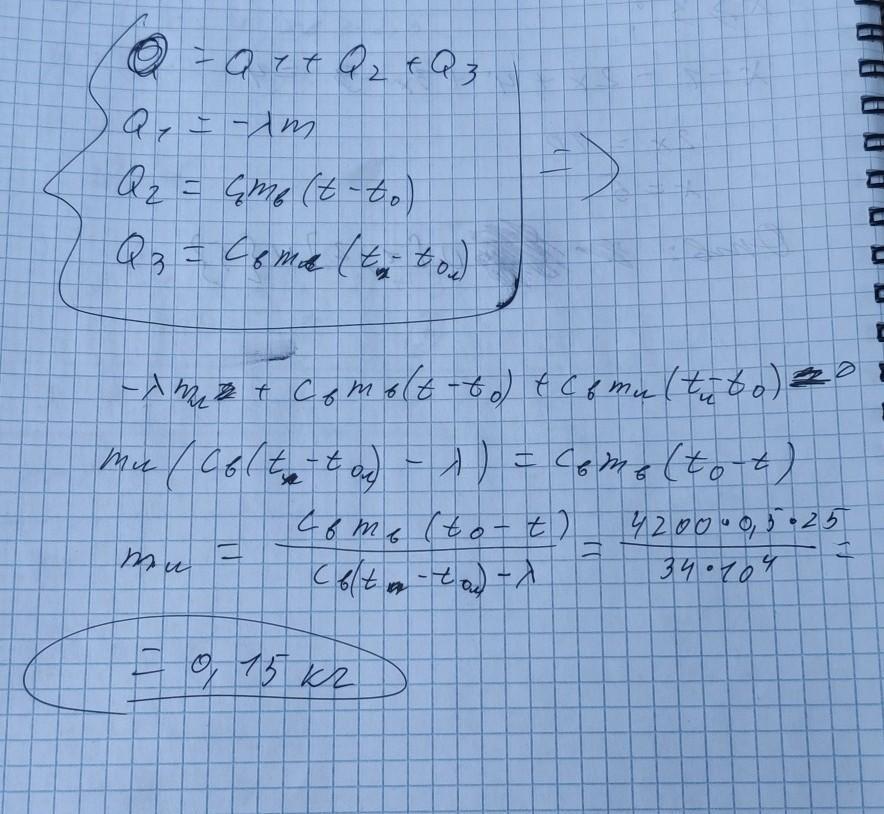 0 = Q1 + Q2 + Q3
Q1 = -λm
Q2 = cвmв(t - t0)
Q3 = cвmл(tл - t0л)
=>
-λmл + cвmв(t - t0) + cвmл(tл - t0) = 0
mл(cв(tл - t0л) - λ) = cвmв(t0 - t)
mл = cвmв(t0 - t) / cв(tл - t0л) - λ = 4200·0,5·25 / 34·10⁴ =
= 0,15 кг